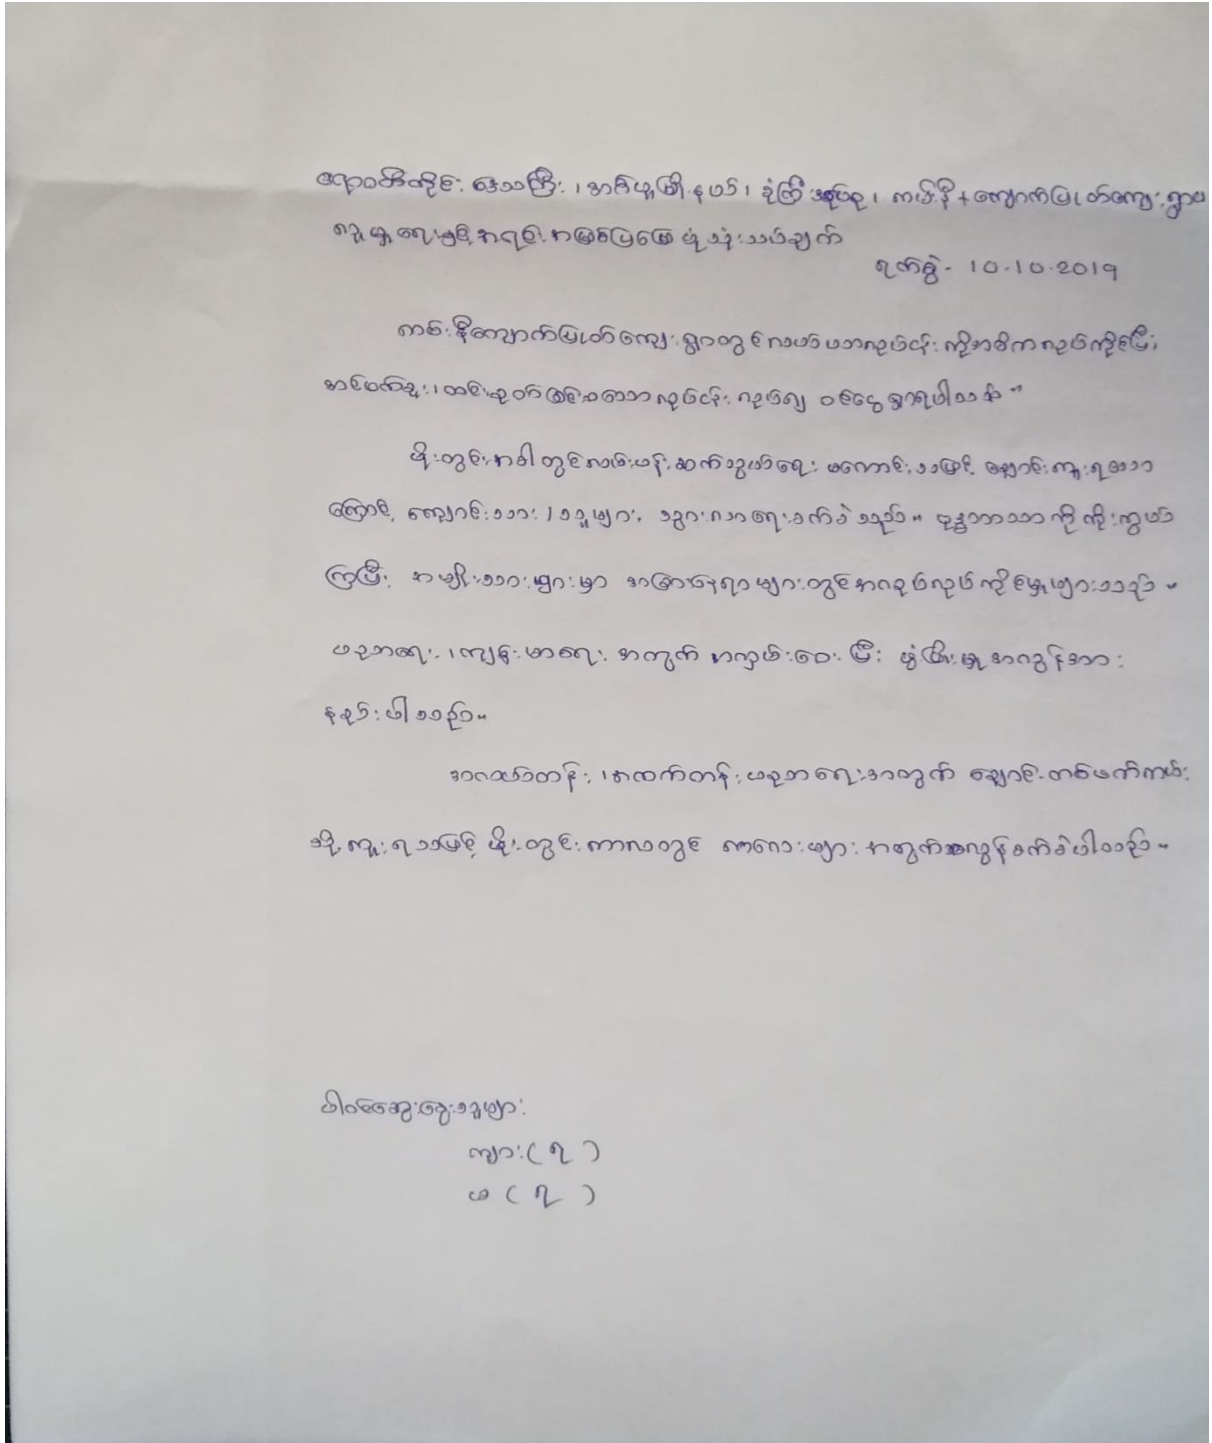 ဧရာဝတီတိုင်း ဒေသကြီး ၊ အင်္ဂပူမြို့နယ် ၊ ခုံကြီးအုပ်စု ၊ ကမ်းနီ + ကျောက်ပြုတ်ကျေးရွာ၏
လူမှုရေးနှင့် အရင်းအမြစ်ပြမြေပုံ သုံးသပ်ချက်
ရက်စွဲ - 10.10.2019
ကမ်းနီကျောက်ပြုတ်ကျေးရွာတွင် လယ်ယာလုပ်ငန်းကိုအဓိကလုပ်ကိုင်ပြီး
ထင်းခုတ်ခြင်းစသောလုပ်ငန်း လုပ်၍ ဝင်ငွေရှာရပါသည်။
မိုးတွင်းအခါတွင်လမ်းပန်းဆက်သွယ်ရေး မကောင်းသဖြင့် ချောင်းကူးရသော
ကြောင့် ကျောင်းသား ၊ သူများ သွားလာရေးခက်ခဲသည်။ ဗုဒ္ဓဘာသာကိုကိုးကွယ်
ကြပြီး အမျိုးသားများမှာ အခြားနေရာများတွင်အလုပ်လုပ်ကိုင်မှုများသည်။
ပညာရေး ၊ ကျန်းမာရေး အတွက် အလှမ်းဝေးပြီး ဖွံ့ဖြိုးမှုအလွန်အား
နည်းပါသည်။
အလယ်တန်း ၊ အထက်တန်း ပညာရေးအတွက် ချောင်းတစ်ဖက်ကမ်း
သို့ကူးရသဖြင့် မိုးတွင်းကာလတွင် ကလေးများ အတွက်အလွန်ခက်ခဲပါသည်။
ပါဝင်ဆွေးနွေးသူများ
ကျား ( ၇ )
မ ( ၇ )